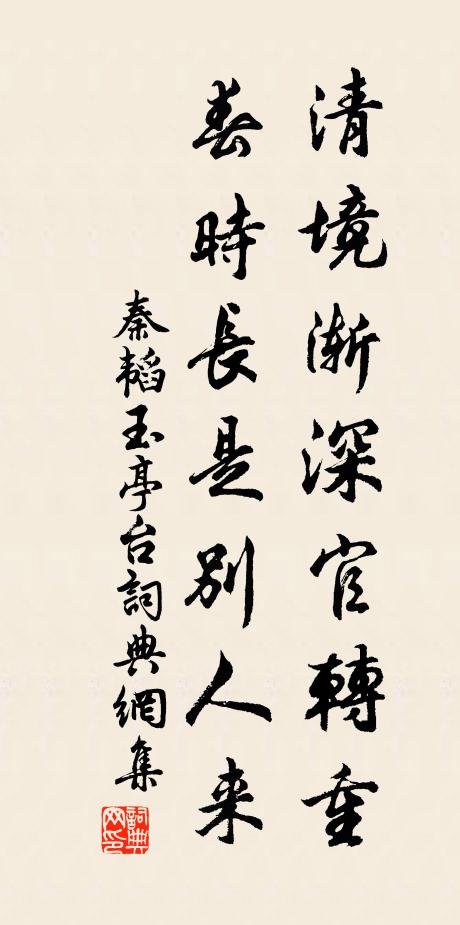 清境漸深官轉重
春時長是別人来
秦韬玉亭台詞典網集
詞典
网印